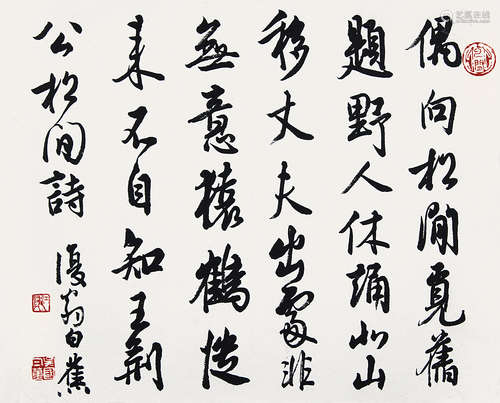 偶向松間覓舊
題野人休誦北山
移丈夫出處非
無意猿鶴從
來不自知王荆
公松間詩
復翁白蕉